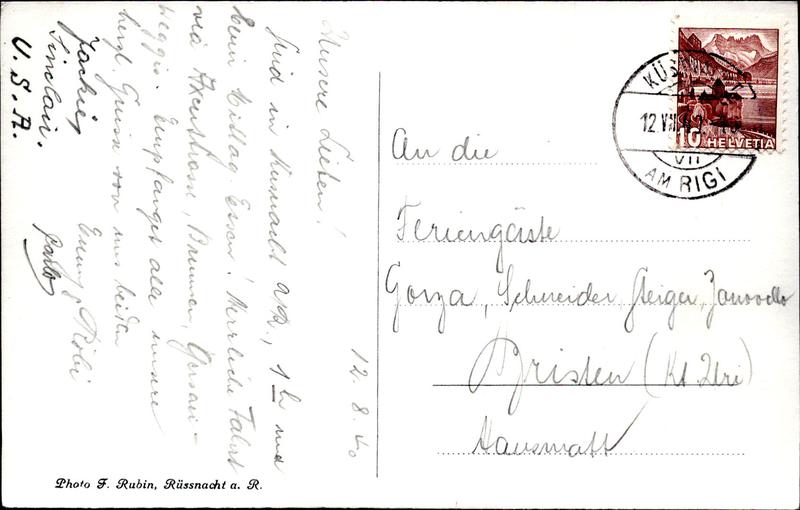 12. 8. 40
Unsere Lieben!
Sind in Küsnacht a/R., 1 h und
beim Mittag Essen! Herrliche Fahrt
via Axenstrasse, Brunnen, Gersau-
Weggis. Empfanget alle unsere
herzl. Grüsse von uns beiden
Emmy & Röbi
Jackie,
Sinclair.
U.S.A.
An die
Feriengäste
Gorza, Schneider, Steiger, Janovello
Bristen (Kt. Uri)
Hausmatt
AM RIGI
VII
10 HELVETIA
Photo F. Rubin, Küssnacht a. R.